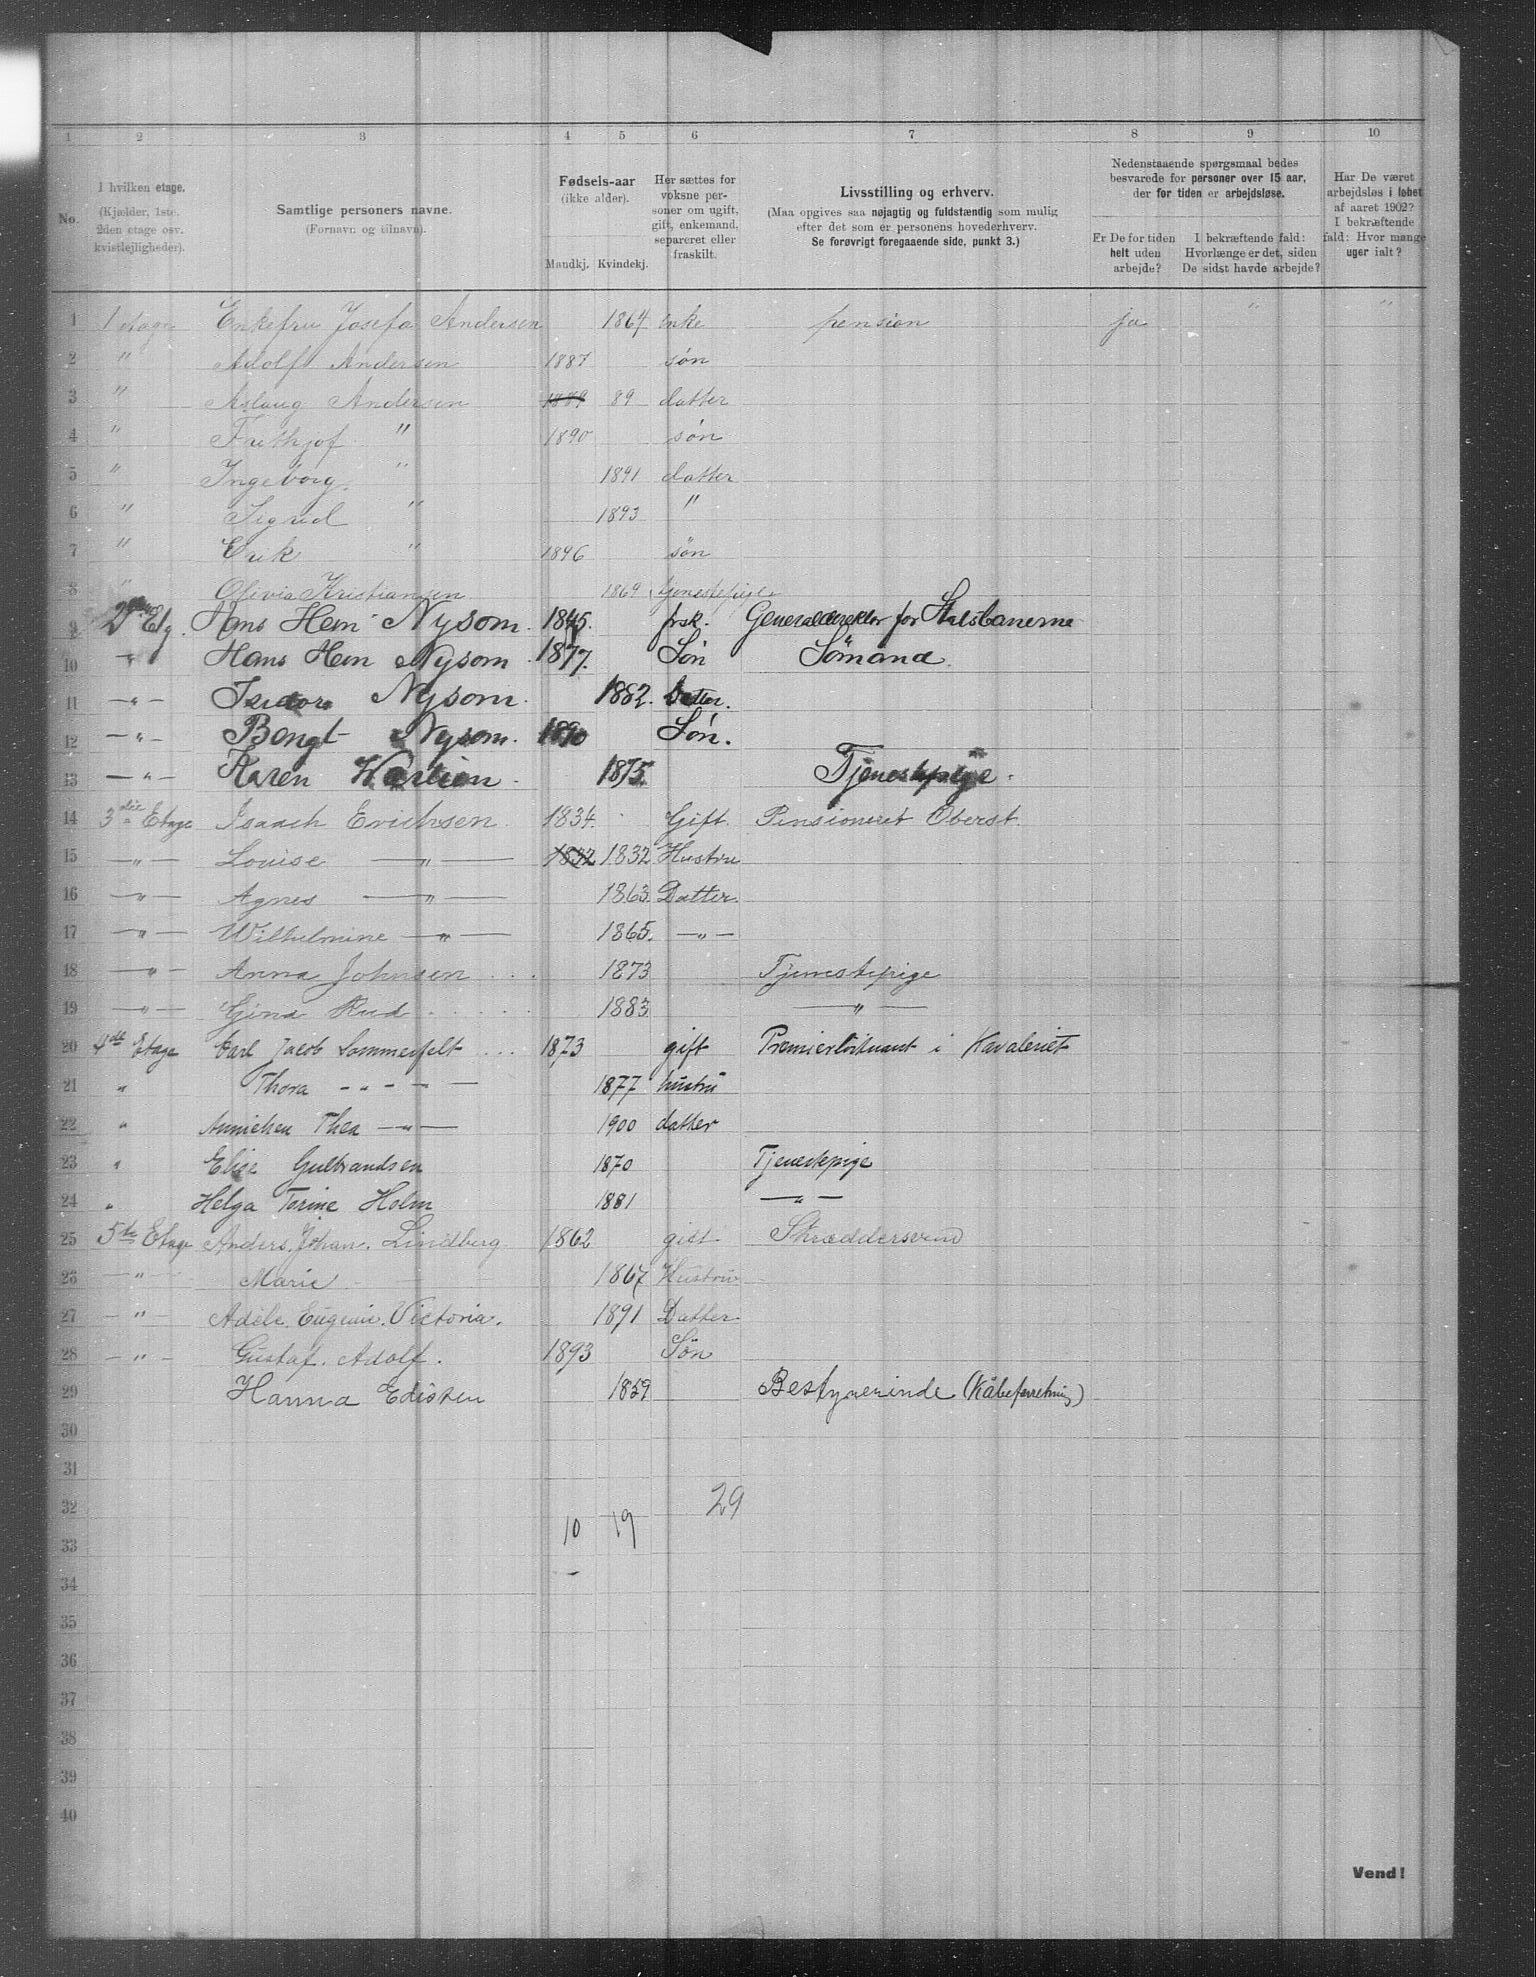 1 2 3 4 5 6 7 8 9 10
No.
I hvilken etage.
(Kjælder, 1ste, 2den etage osv. kvistlejligheder).
Samtlige personers navne.
(Fornavn og tilnavn).
Fødsels-aar
(ikke alder).
Mandkj. Kvindekj.
Her sættes for voksne personer om ugift, gift, enkemand, separeret eller fraskilt.
Livsstilling og erhverv.
(Maa opgives saa nøjagtig og fuldstændig som mulig
efter det som er personens hovederhverv.
Se forøvrigt foregaaende side, punkt 3.)
Nedenstaaende spørgsmaal bedes
besvarede for personer over 15 aar,
der for tiden er arbejdsløse.
Er De for tiden
helt uden
arbejde?
I bekræftende fald:
Hvorlænge er det, siden
De sidst havde arbejde?
Har De været
arbejdsløs i løbet
af aaret 1902?
I bekræftende
fald: Hvor mange
uger ialt?
1 1 etage Enkefru Josefa Andersen 1864 enke pension ja " "
2 " Adolf Andersen 1887 søn
3 " Aslaug Andersen 1889 89 datter
4 " Frithjof " 1890 søn
5 " Ingeborg " 1891 datter
6 " Sigrid " 1893 "
7 " Erik " 1896 søn
8 " Olivia Kristiansen 1869 tjenestepige
9 2 Etg. Hans Hein Nysom 1845. frsk. Generaldirektør for Statsbanerne
10 " Hans Hein Nysom 1877. Søn Sömand.
11 — " — Isidora Nysom. 1882. Datter.
12 — " — Bengt Nysom. 1890 Søn.
13 — " — Karen 1875. Tjenestepige.
14 3die Etage Isaach Erichsen 1834. Gift. Pensioneret Oberst.
15 — " — Louise — " — 1832 1832 Hustru
16 — " — Agnes — " — 1863. Datter.
17 — " — Wilhelmine — " — 1865. — " —
18 — " — Anna Johnsen . . . 1873 Tjenestepige
19 — " — Gina Rud . . . . . 1883 — " —
20 4de Etage Carl Jacob Sommerfelt . . . 1873 gift Premierløitnant i Kavaleriet
21 " Thora — " — — — 1877 hustru
22 " Annichen Thea — " — 1900 datter
23 " Elise Gulbrandsen 1870 Tjenestepige
24 " Helga Torine Holm 1881 — " —
25 5te Etage Anders. Johan. Lindberg 1862 gift Skræddersvend
26 — " — Marie 1867 Hustru
27 — " — Adèle. Eugenie. Victoria. 1891 Datter
28 — " — Gustaf. Adolf. 1893 Søn
29 Hanna Edisen 1859 Bestyrerinde (Kåbeforretning)
30
31
32 29
10 19
33
34
35
36
37
38
39
40
Vend!